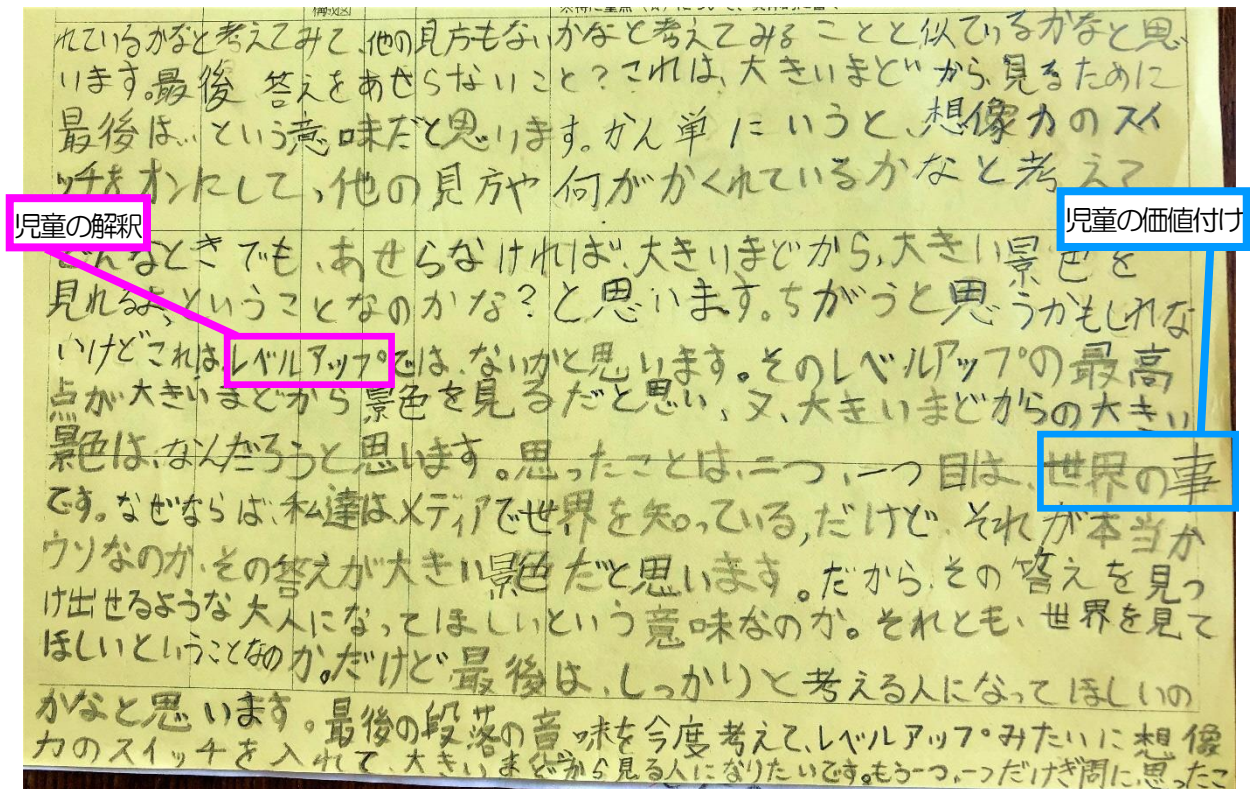 構成図
れているかなと考えてみて、他の見方もないかなと考えてみることと似ているかなと思
います。最後 答えをあせらないこと?これは、大きいまどから、見るために
最後は…という意味だと思います。かん単にいうと、想像力のスイ
ッチをオンにして、他の見方や何がかくれているかなと考えて
児童の解釈
児童の価値付け
どんなときでも、あせらなければ、大きいまどから、大きい景色を
見れるよ、ということなのかな?と思います。ちがうと思うかもしれな
いけどこれは、レベルアップでは、ないかと思います。そのレベルアップの最高
点が大きいまどから景色を見るだと思い、又、大きいまどからの大きい
景色は、なんだろうと思います。思ったことは、二つ、一つ目は、世界の事
です。なぜならば、私達は、メディアで世界を知っている,だけど それが本当か
ウソなのか、その答えが大きい景色だと思います。だから、その答えを見つ
け出せるような大人になってほしいという意味なのか。それとも、世界を見て
ほしいということなのか。だけど最後は、しっかりと考える人になってほしいの
かなと思います。最後の段落の意味を今度考えて、レベルアップみたいに想像
力のスイッチを入れて、大きいまどから見る人になりたいです。もう一つ、一つだけぎ問に、思ったこ